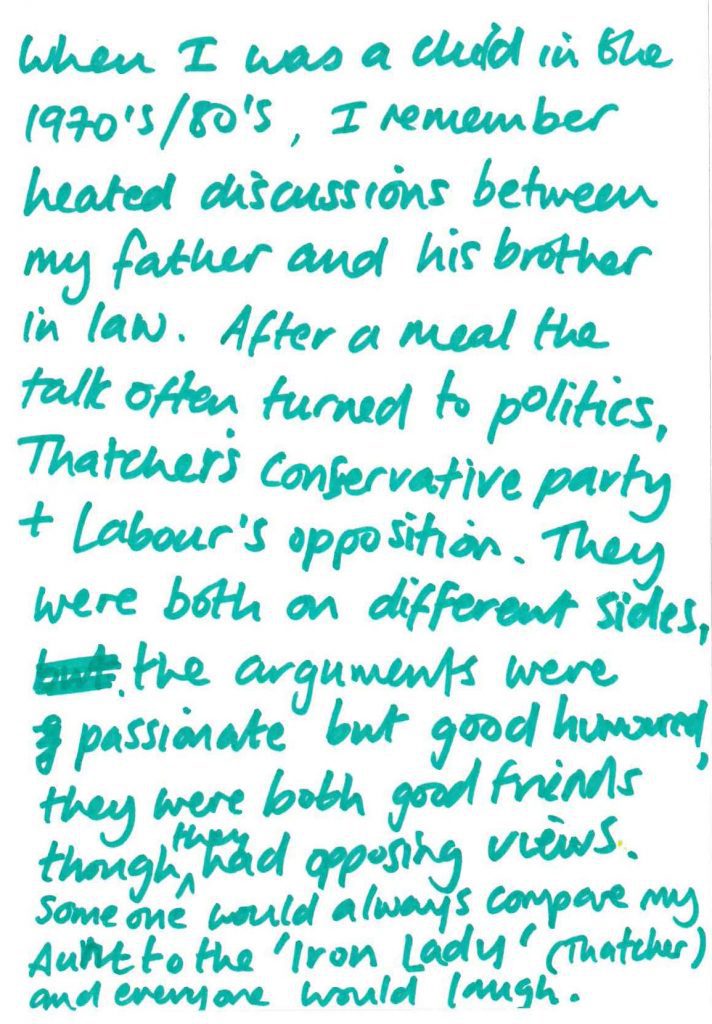 When I was a child in the
1970's/80's, I remember
heated discussions between
my father and his brother
in law. After a meal the
talk often turned to politics,
Thatcher's Conservative party
+ Labour's opposition. They
were both on different sides,
but the arguments were
passionate but good humoured,
they were both good friends
though they had opposing views.
Someone would always compare my
Aunt to the 'Iron Lady' (Thatcher)
and everyone would laugh.